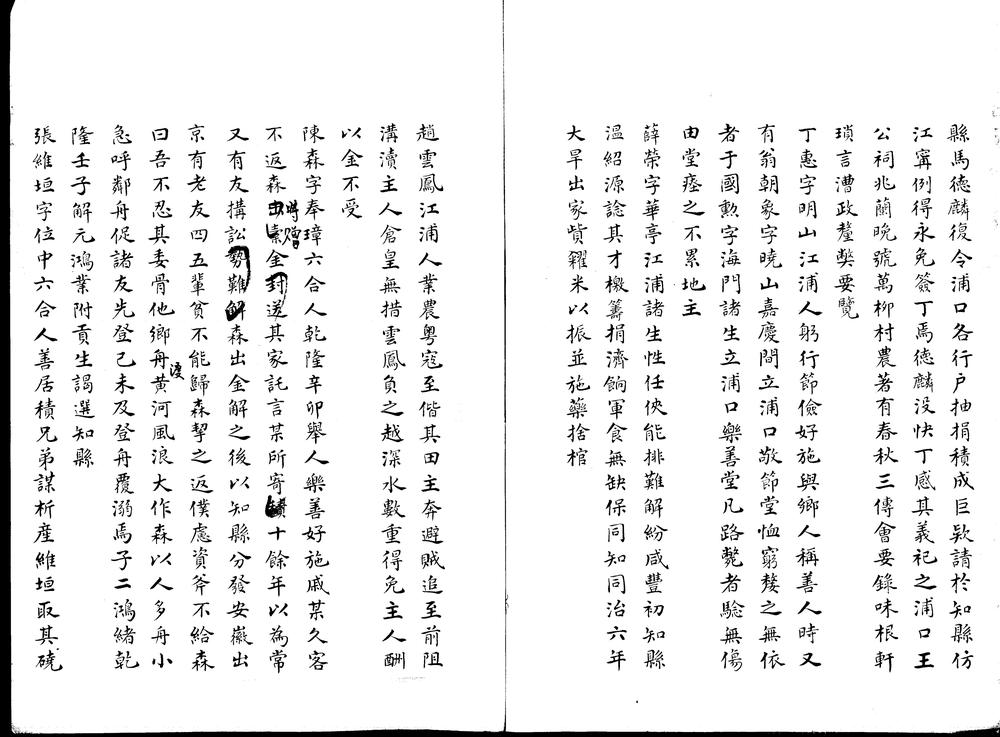 縣馬德麟復令浦口各行户抽捐積成巨欵請於知縣仿
江甯例得永免簽丁焉德麟没快丁感其義祀之浦口王
公祠兆蘭晩號萬柳村農著有春秋三傳會要錄味根軒
瑣言漕政釐獘要覽
丁惠字明山江浦人躬行節儉好施與鄉人稱善人時又
有翁朝象字曉山嘉慶間立浦口敬節堂恤窮嫠之無依
者于國勲字海門諸生立浦口樂善堂凡路斃者驗無傷
由堂瘞之不累地主
薛榮字華亭江浦諸生性任俠能排難解紛咸豐初知縣
溫紹源諗其才檄籌捐濟餉軍食無缺保同知同治六年
大旱出家貲糴米以振並施藥捨棺
趙雲鳳江浦人業農粤寇至偕其田主奔避賊追至前阻
溝瀆主人倉皇無措雲鳳負之越深水數重得免主人酬
以金不受
陳森字奉璋六合人乾隆辛卯舉人樂善好施戚某久客
不返森時贈金送其家託言某所寄十餘年以為常
又有友搆訟勢難解森出金解之後以知縣分發安徽出
京有老友四五輩貧不能歸森挈之返僕慮資斧不給森
曰吾不忍其委骨他鄉舟渡黄河風浪大作森以人多舟小
急呼鄰舟促諸友先登己未及登舟覆溺焉子二鴻緒乾
隆壬子解元鴻業附貢生謁選知縣
張維垣字位中六合人善居積兄弟謀析産維垣取其磽